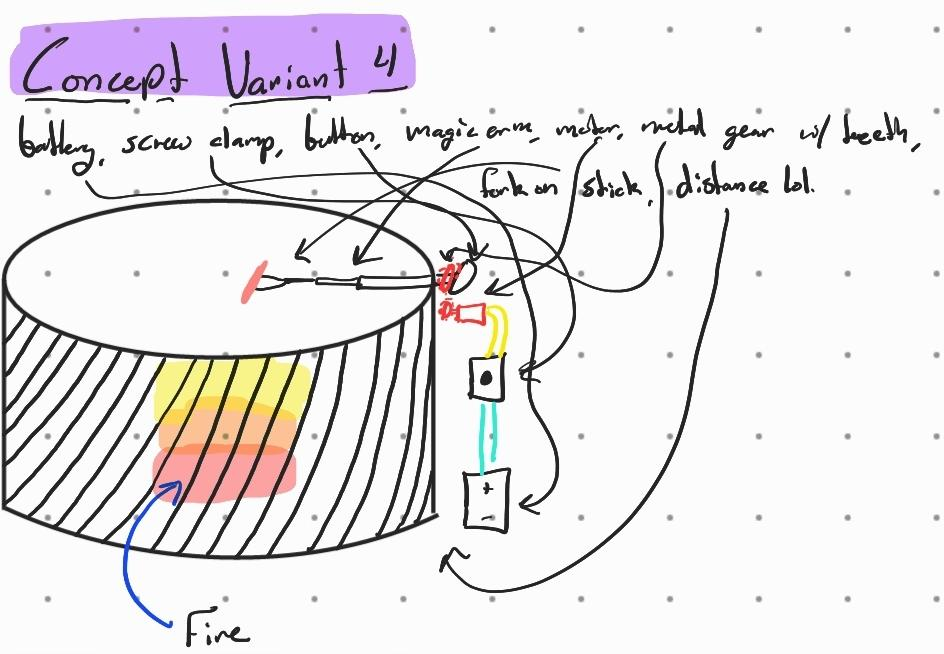 Concept Variant 4
battery, screw clamp, button, magic arm, motor, metal gear w/ teeth,
fork on stick, distance lol.
+
-
Fire